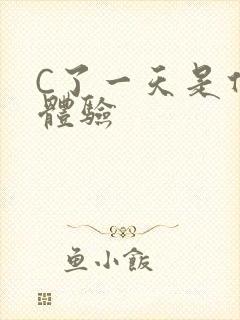 C了一天是
體驗
鱼小飯